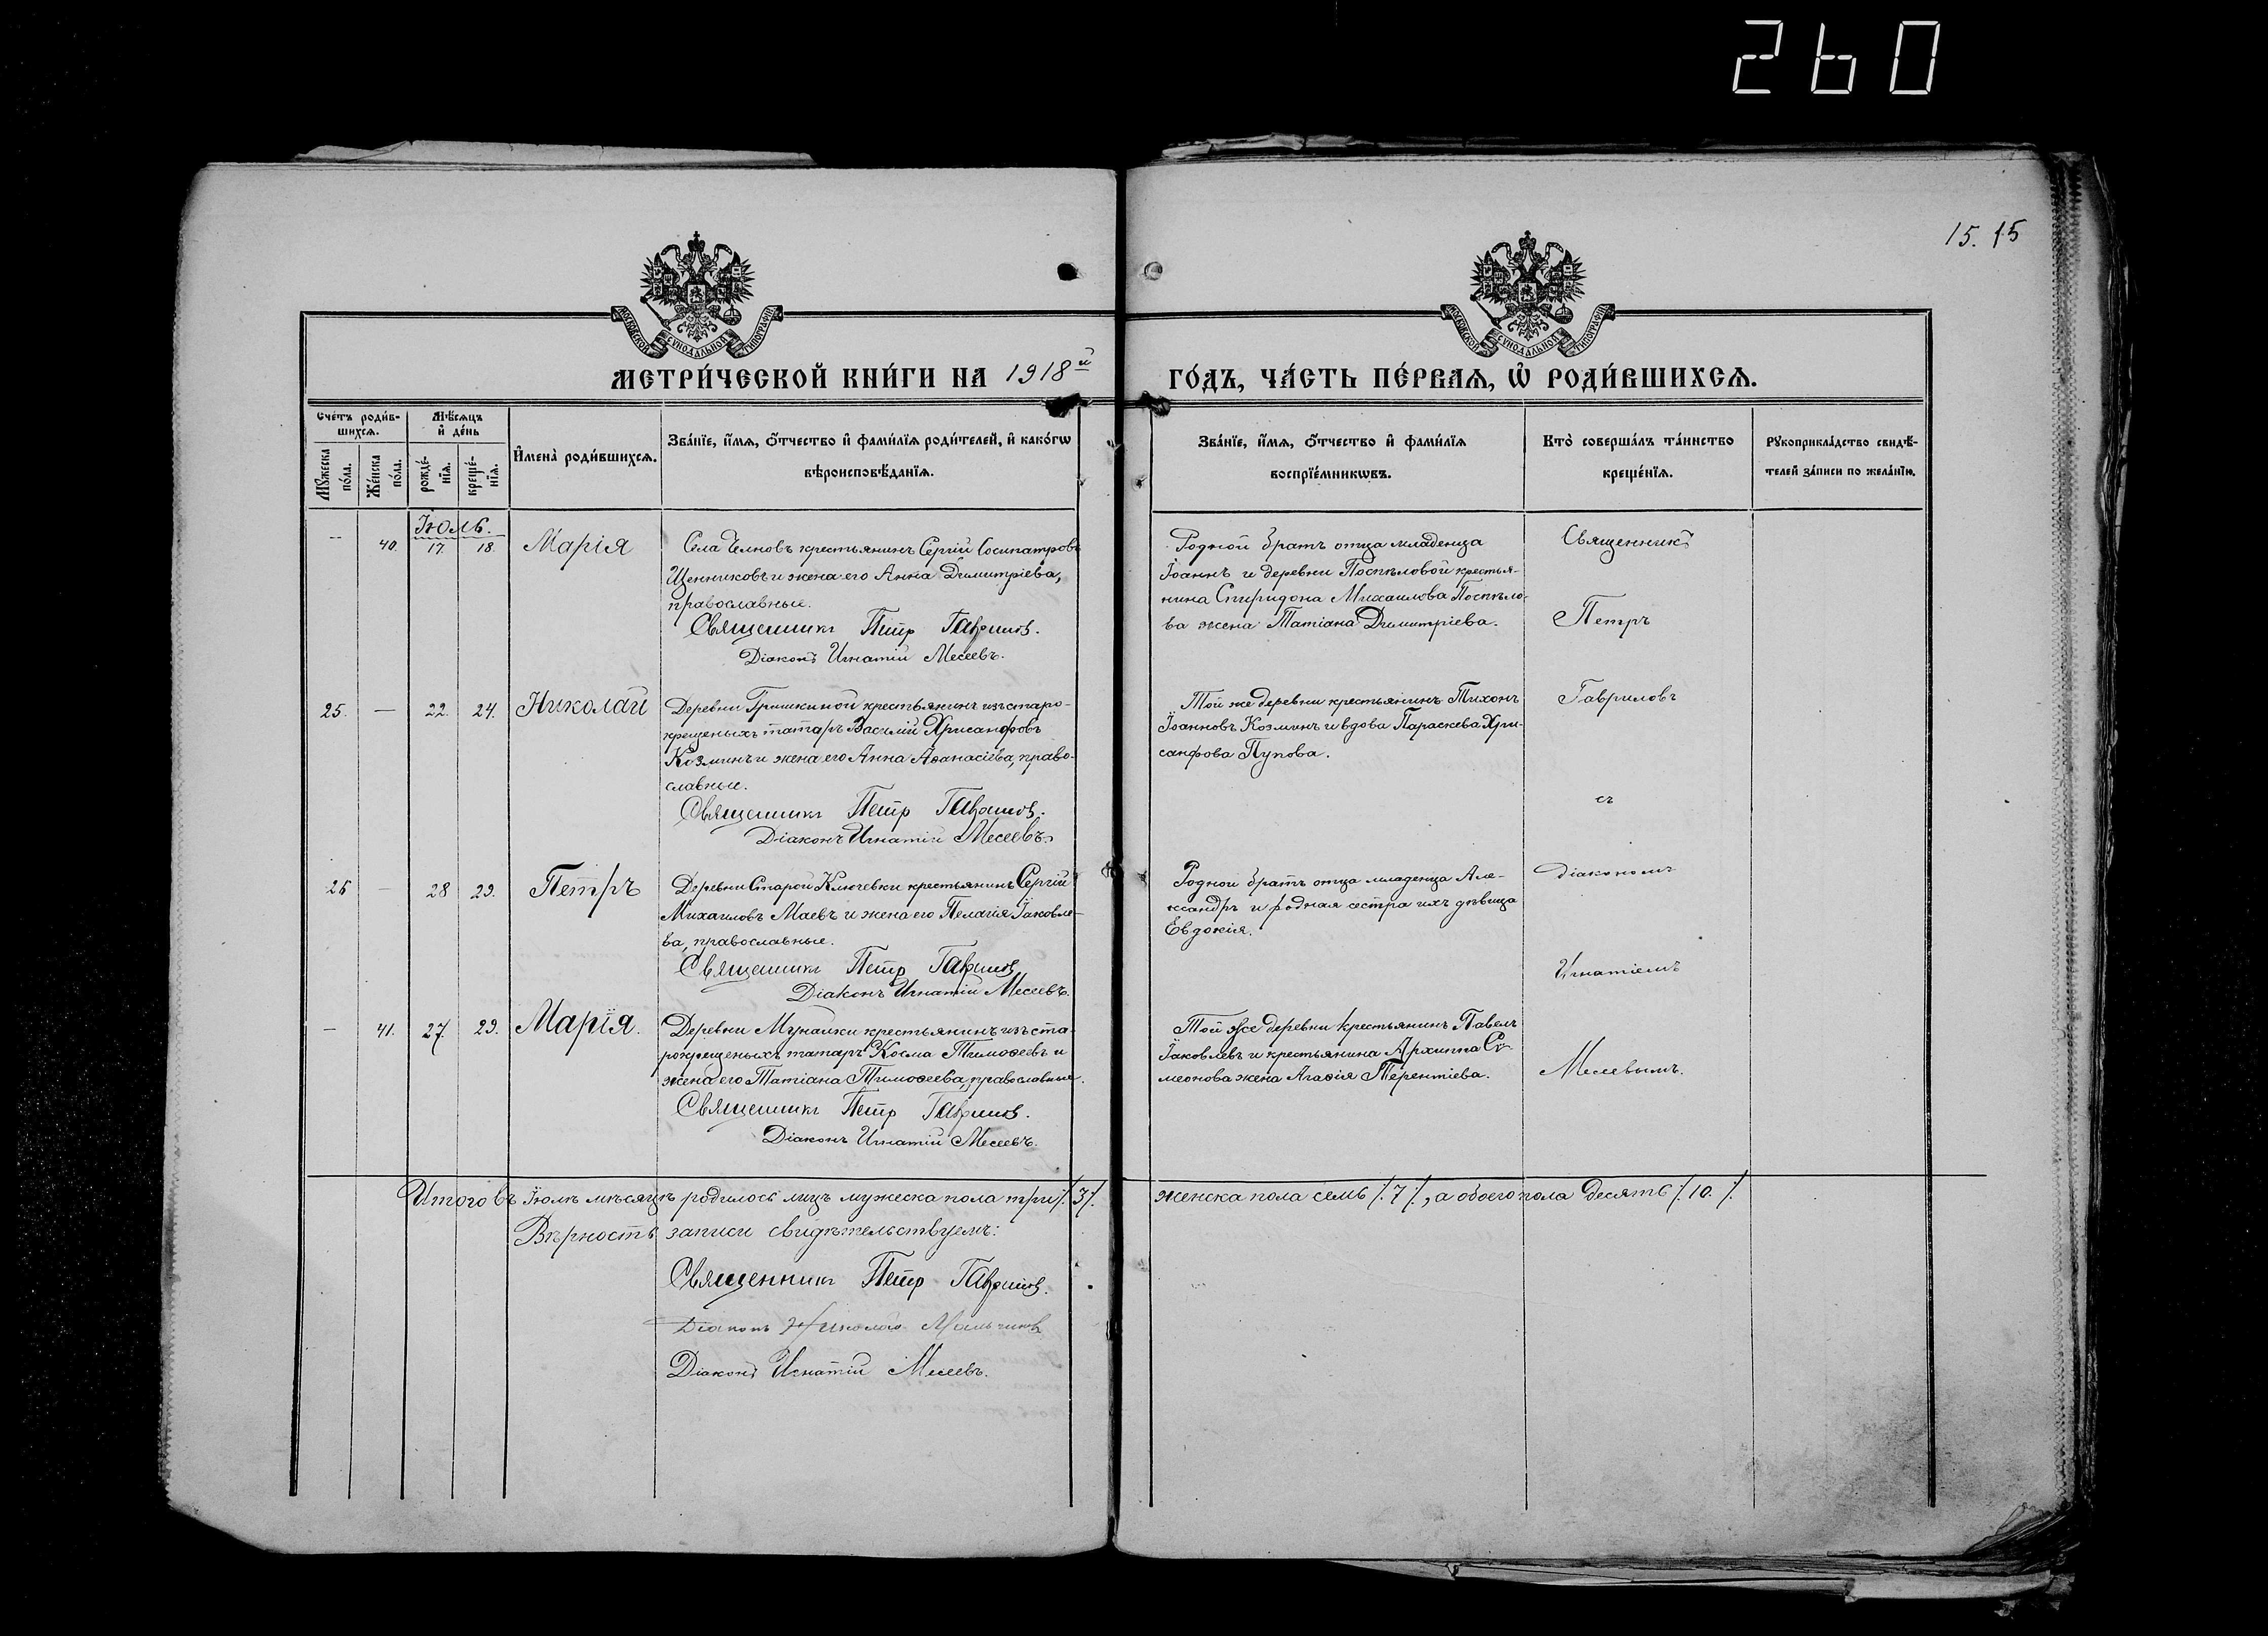 260
15. 15
МОСКОВСКОЙ СУНОДАЛЬНОЙ ТИПОГРАФІИ
МОСКОВСКОЙ СУНОДАЛЬНОЙ ТИПОГРАФІИ
МЕТРИ́ЧЕСКОЙ КНИ́ГИ НА 1918й ГО́ДЪ, ЧА́СТЬ ПЕ́РВАѦ, Ѡ҆ РОДИ́ВШИХСѦ.
Сче́тъ роди́в-
шихсѧ.
Мѣ́сѧцъ
и҆ де́нь
Мꙋжеска
по́ла.
Же́нска
по́ла.
рожде́-
нїѧ.
креще́-
нїѧ.
И҆мена̀ роди́вшихсѧ.
Зва́нїе, и҆́мѧ, ѻ҆́тчество и҆ фами́лїѧ роди́телей, и҆ како́гѡ
вѣроисповѣ́данїѧ.
Зва́нїе, и҆́мѧ, ѻ҆́тчество и҆ фами́лїѧ
воспрїе́мникѡвъ.
Кто̀ соверша́лъ та́инство
креще́нїѧ.
Рꙋкоприкла́дство свидѣ́-
телей за́писи по жела́нїю.
Іюль.
— 40. 17. 18. Марія
Села Челновъ крестьянинъ Сергій Сосипатровъ
Щенниковъ и жена его Анна Димитріева,
православные.
Священникъ Петръ Гавриловъ.
Діаконъ Игнатій Месеевъ.
Родной братъ отца младенца
Іоаннъ и деревни Поспѣловой крестья-
нина Спиридона Михаилова Поспѣло-
ва жена Татіана Димитріева.
Священникъ
Петръ
25. — 22. 24. Николай
Деревни Гришкиной крестьянинъ изъ старо-
крещеныхъ татаръ Василій Хрисанфовъ
Козминъ и жена его Анна Аѳанасіева, право-
славные.
Священникъ Петръ Гавриловъ.
Діаконъ Игнатій Месеевъ.
Той же деревни крестьянинъ Тихонъ
Іоанновъ Козминъ и вдова Параскева Хри-
санфова Пупова.
Гавриловъ
съ
26 — 28 29. Петръ
Деревни Старой Ключевки крестьянинъ Сергій
Михаиловъ Маевъ и жена его Пелагія Іаковле-
ва, православные.
Священникъ Петръ Гавриловъ
Діаконъ Игнатій Месеевъ.
Родной братъ отца младенца Але-
ксандръ и родная сестра ихъ дѣвица
Евдокія.
діакономъ
Игнатіемъ
— 41. 27. 29. Марія.
Деревни Мунайки крестьянинъ изъ ста-
рокрещеныхъ татаръ Косма Тимоѳеевъ и
жена его Татіана Тимоѳеева, православные.
Священникъ Петръ Гавриловъ.
Діаконъ Игнатій Месеевъ.
Той же деревни крестьянинъ Павелъ
Іаковлевъ и крестьянина Архиппа Си-
меонова жена Агаѳія Терентіева.
Месеевымъ.
Итого въ Іюлѣ мѣсяцѣ родилось лицъ мужеска пола три /. 3 /. женска пола семь /. 7 /., а обоего пола десять /. 10. /.
Вѣрность записи свидѣтельствуемъ:
Священникъ Петръ Гавриловъ.
Діаконъ Николай Мальчиковъ
Діаконъ Игнатій Месеевъ.